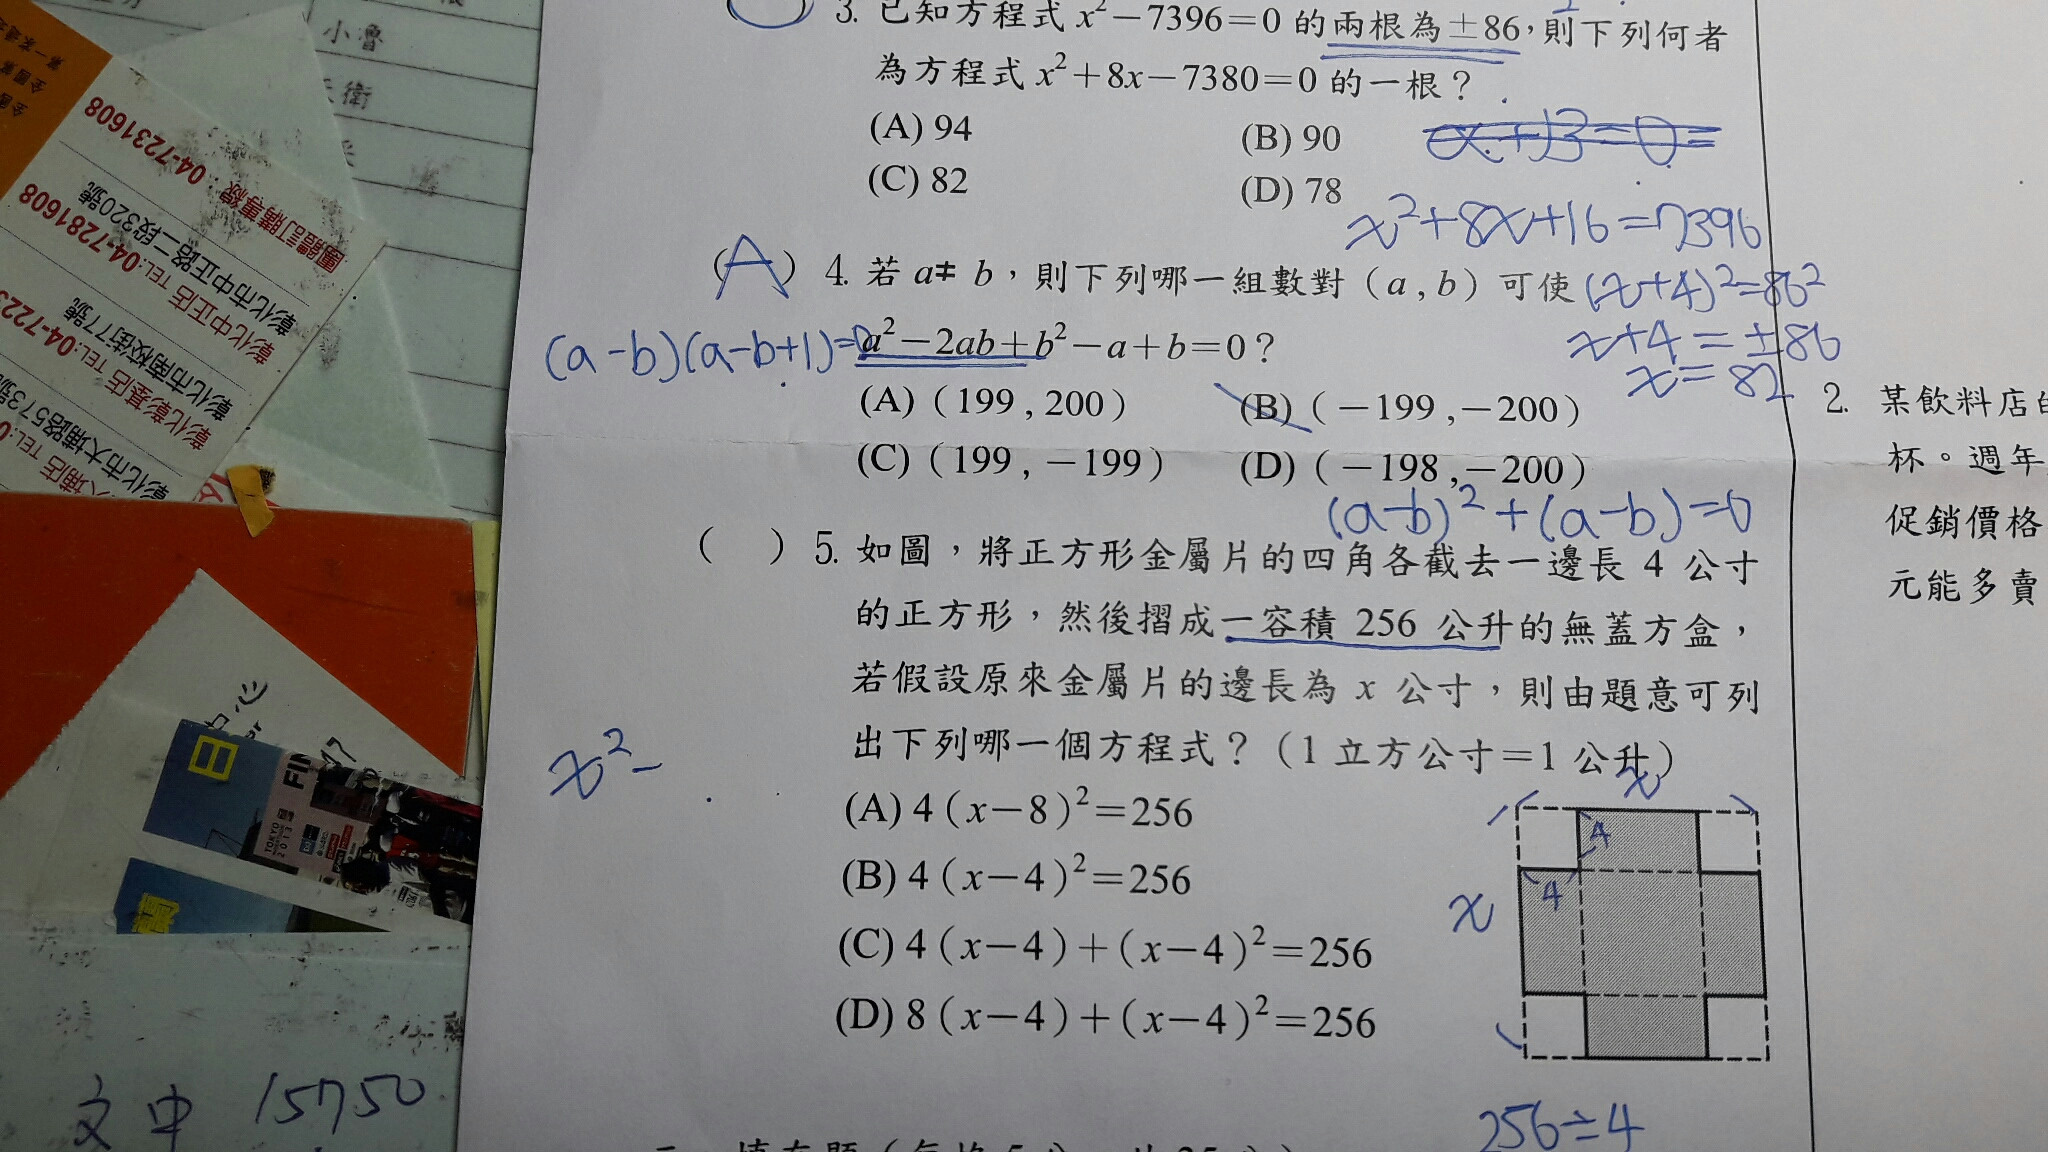 小魯
衛
團體訂購專線：04-7231608
彰化市中正路二段320號
彰化中正店 TEL:04-7281608
彰化市南校街77號
彰化彰基店 TEL:04-722
彰化市大埔路573號
大埔店 TEL:0
3. 已知方程式 x²－7396＝0 的兩根為±86，則下列何者
為方程式 x²＋8x－7380＝0 的一根？
(A) 94 (B) 90
(C) 82 (D) 78
x²+8x+16=7396
(x+4)²=86²
x+4=±86
x=82
(A) 4. 若 a≠b，則下列哪一組數對（a , b）可使
a²－2ab＋b²－a＋b＝0？
(a-b)(a-b+1)=0
(A)（199 , 200） (B)（－199 ,－200）
(C)（199 , －199） (D)（－198 ,－200）
(a-b)²+(a-b)=0
（ ）5. 如圖，將正方形金屬片的四角各截去一邊長 4 公寸
的正方形，然後摺成一容積 256 公升的無蓋方盒，
若假設原來金屬片的邊長為 x 公寸，則由題意可列
出下列哪一個方程式？（1 立方公寸＝1 公升）
x²-
(A) 4（x－8）²＝256
(B) 4（x－4）²＝256
(C) 4（x－4）＋（x－4）²＝256
(D) 8（x－4）＋（x－4）²＝256
x
4
4
x
256÷4
2. 某飲料店
杯。週年
促銷價格
元能多賣
TOKYO
2013
文中 15750